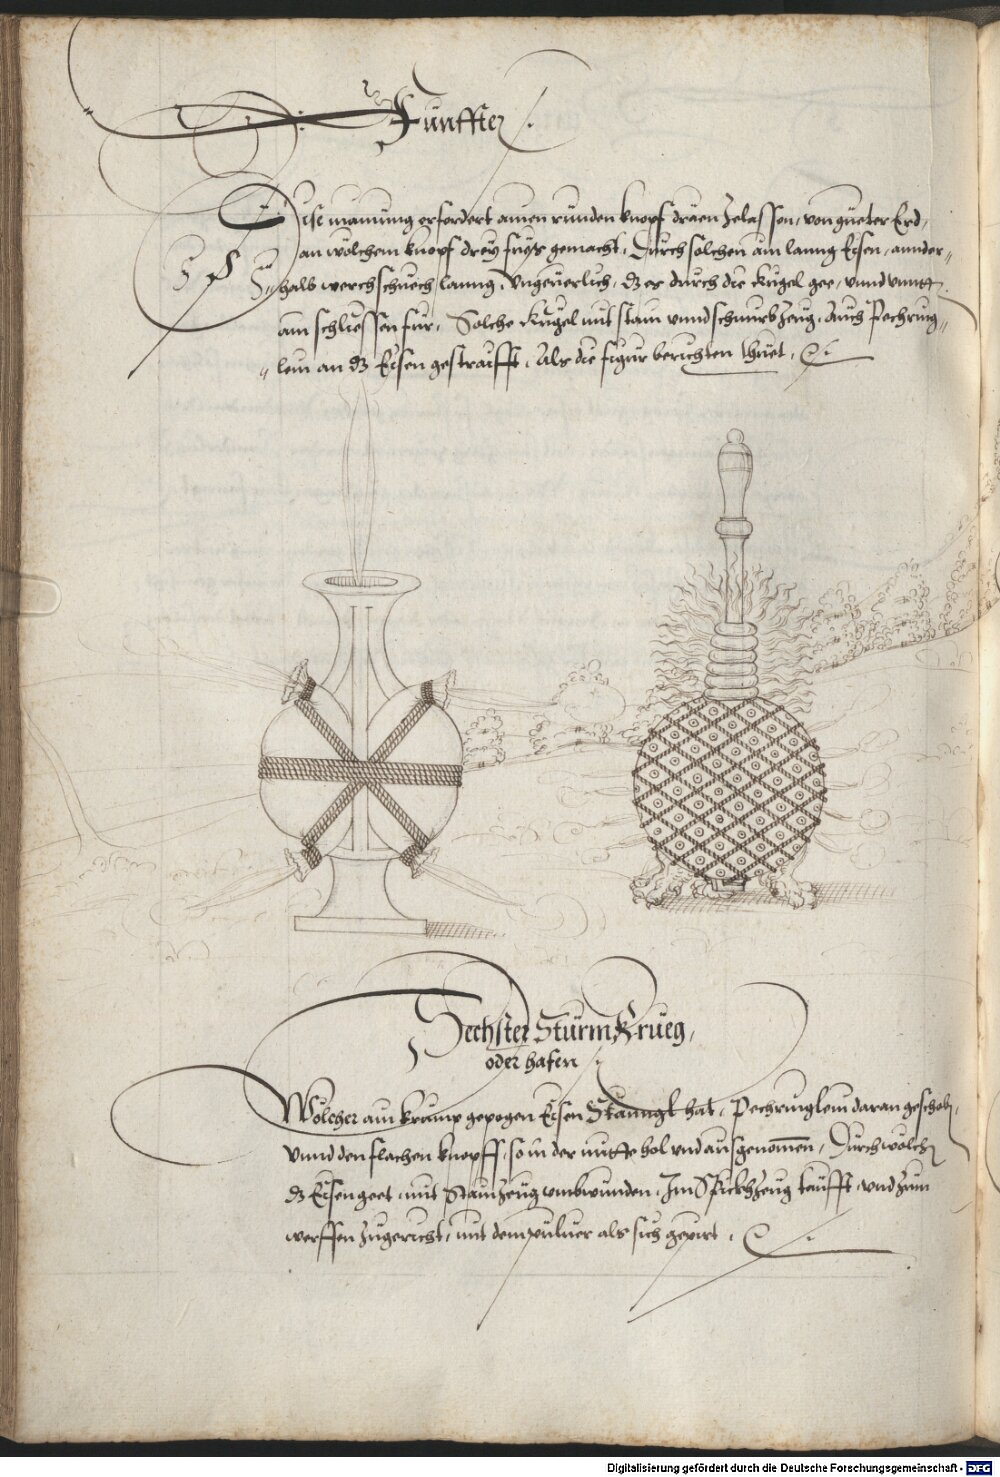 Fünffter
Dise mainung erfordert ainen runden knopf dräen zelassen, von gueter Erd,
an wölchem knopf drey fueß gemacht, Durch solchen ain lanng Eisen, annder-
halb werchschuech lanng, ungeuerlich, dz es durch die kugel gee, vnnd vnnt
ain schliessen für, Solche kugel mit stain vnnd schnurbzeug, Auch Pechring-
lein an dz Eisen gestraifft, Als die figur berichten thuet,
Sechster Sturm Krueg,
oder hafen
Wölcher ain krump gepogen Eisen Stanngl hat, Pechringlein daran geschoben,
vnnd den flachen knopff, so in der mitte hol vnd ausgenomen, Durch wölchen
dz Eisen geet, mit Stainzeug vmbwunden, Im zeug taufft, vnd zum
werffen zugericht, mit dem puluer als sich gepirt,
Digitalisierung gefördert durch die Deutsche Forschungsgemeinschaft - DFG